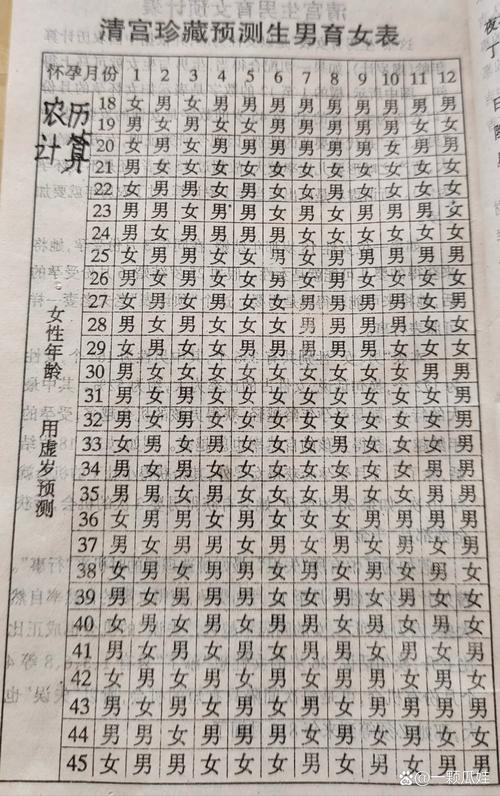 清宫珍藏预测生男育女表
怀孕月份 1 2 3 4 5 6 7 8 9 10 11 12
农历
计算
女性年龄 用虚岁预测
18 女 男 女 男 男 男 男 男 男 男 男 男
19 男 女 男 女 女 男 男 男 男 男 女 女
20 女 男 女 男 男 男 男 男 男 女 男 男
21 男 女 女 女 女 女 女 女 女 女 女 女
22 女 男 男 女 男 女 女 男 女 女 女 女
23 男 男 女 男 男 女 男 女 男 男 男 女
24 男 女 男 男 男 男 女 女 女 女 女 女
25 女 男 男 女 女 男 女 男 男 男 男 男
26 女 男 女 女 女 男 女 男 女 女 女 女
27 女 男 女 男 女 女 男 男 男 男 女 男
28 男 女 男 女 女 女 男 男 男 男 女 女
29 男 女 女 男 男 男 男 男 男 女 女 女
30 男 女 女 女 女 女 女 女 女 女 男 男
31 男 女 男 女 女 女 女 女 女 女 女 男
32 男 女 男 女 女 女 女 女 女 女 女 男
33 女 男 女 男 女 女 女 男 女 女 女 男
34 男 女 男 女 女 女 女 女 女 女 男 男
35 男 男 女 男 女 女 女 男 女 女 男 男
36 女 男 男 女 男 女 女 女 男 男 男 男
37 男 女 男 男 女 男 女 男 女 男 女 男
38 女 男 女 男 男 女 男 女 男 女 男 女
39 男 女 男 男 男 女 女 男 女 男 女 女
40 女 男 女 男 女 男 男 女 男 女 男 女
41 男 女 男 女 男 女 男 男 女 男 女 男
42 女 男 女 男 女 男 女 男 男 女 男 女
43 男 女 男 女 男 女 男 女 男 男 男 男
44 男 男 女 男 男 男 女 男 女 男 女 女
45 女 男 男 女 女 女 男 女 男 女 男 男
@一颗瓜娃